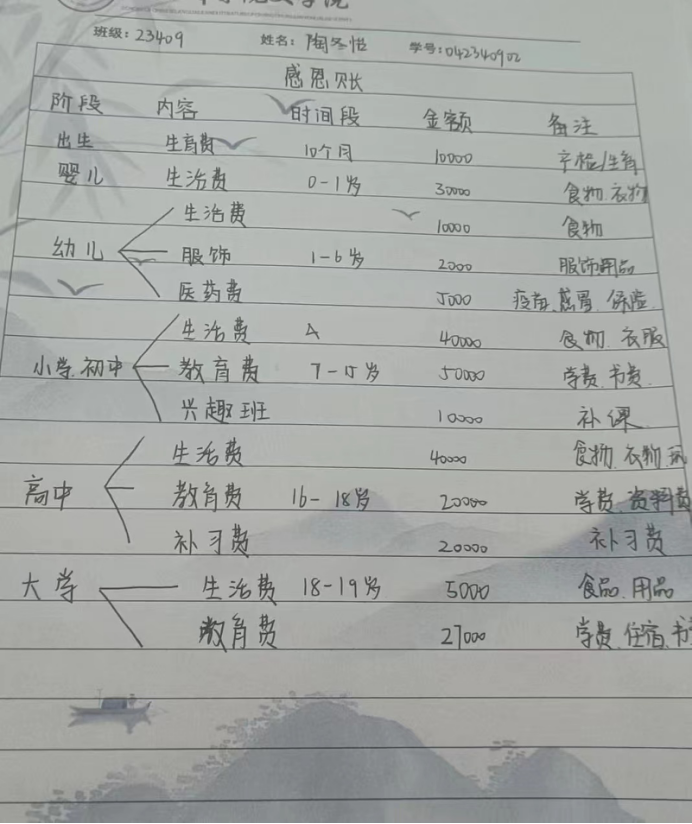 班级：23409 姓名：陶冬 学号：042340902
感恩账
阶段 内容 时间段 金额 备注
出生 生育费 10个月 10000 产检/生育
婴儿 生活费 0-1岁 30000 食物.衣物
生活费 10000 食物
幼儿 服饰 1-6岁 2000 服饰用品
医药费 5000 疫苗.感冒.保险
生活费 40000 食物.衣服
小学.初中 教育费 7-15岁 50000 学费.书费
兴趣班 10000 补课
生活费 40000 食物.衣物
高中 教育费 16-18岁 20000 学费.资料费
补习费 20000 补习费
大学 生活费 18-19岁 5000 食品.用品
教育费 27000 学费.住宿.书